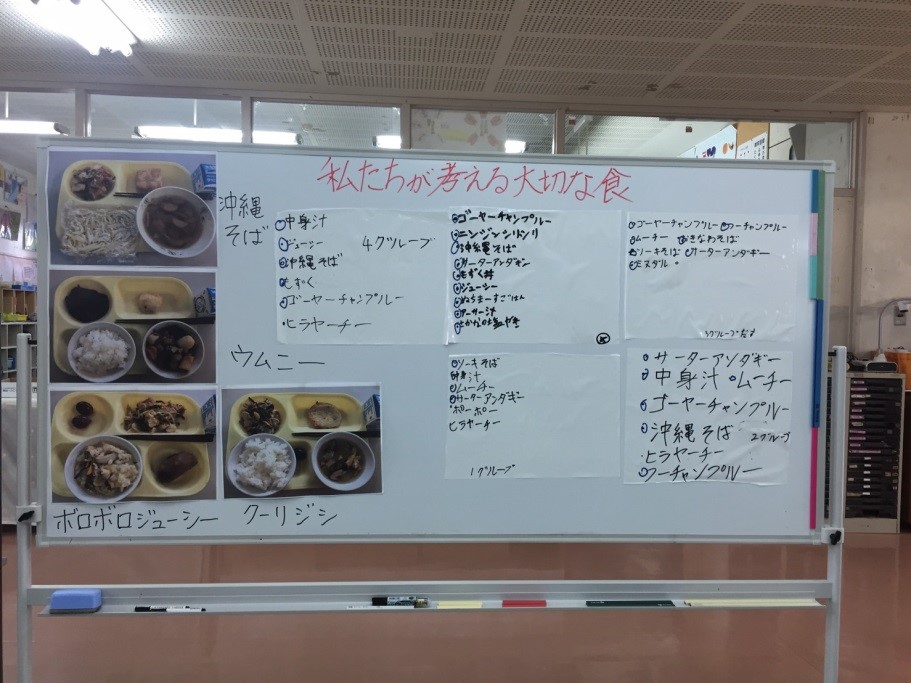 私たちが考える大切な食
沖縄
そば
ウムニー
ボロボロジューシー
クーリジシ
中身汁
ジューシー
4グループ
沖縄そば
もずく
ゴーヤーチャンプルー
ヒラヤーチー
ゴーヤーチャンプルー
ニンジンシリシリ
沖縄そば
サーターアンダギー
もずく丼
ジューシー
ぬちまーすごはん
アーサー汁
5
ゴーヤーチャンプルー フーチャンプルー
ムーチー おきなわそば
ソーキそば サーターアンダギー
ミヌダル
3グループ
ソーキそば
中身汁
ムーチー
サーターアンダギー
ポーポー
ヒラヤーチー
1グループ
サーターアンダギー
中身汁 ムーチー
ゴーヤーチャンプルー
沖縄そば 2グループ
ヒラヤーチー
フーチャンプルー